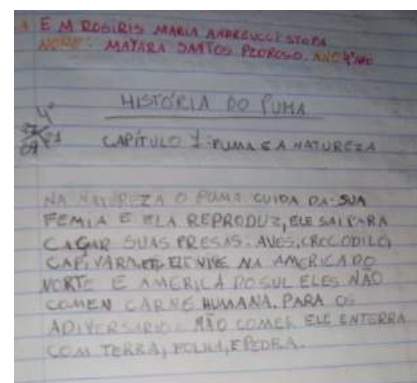 E M ROSIRIS MARIA ANDREUCCI STOPA
NOME: MAYARA SANTOS PEDROSO. ANO 4º ANO
4º
HISTÓRIA DO PUMA
CAPÍTULO 1: PUMA E A NATUREZA
NA NATUREZA O PUMA CUIDA DA SUA
FEMIA E ELA REPRODUZ, ELE SAI PARA
CAÇAR SUAS PRESAS: AVES, CROCODILO,
CAPIVARA, ELE VIVE NA AMERICA DO
NORTE E AMERICA DO SUL ELES NÃO
COMEN CARNE HUMANA. PARA OS
ADIVERSARIO NÃO COMER ELE ENTERRA
COM TERRA, FOLHA, E PEDRA.